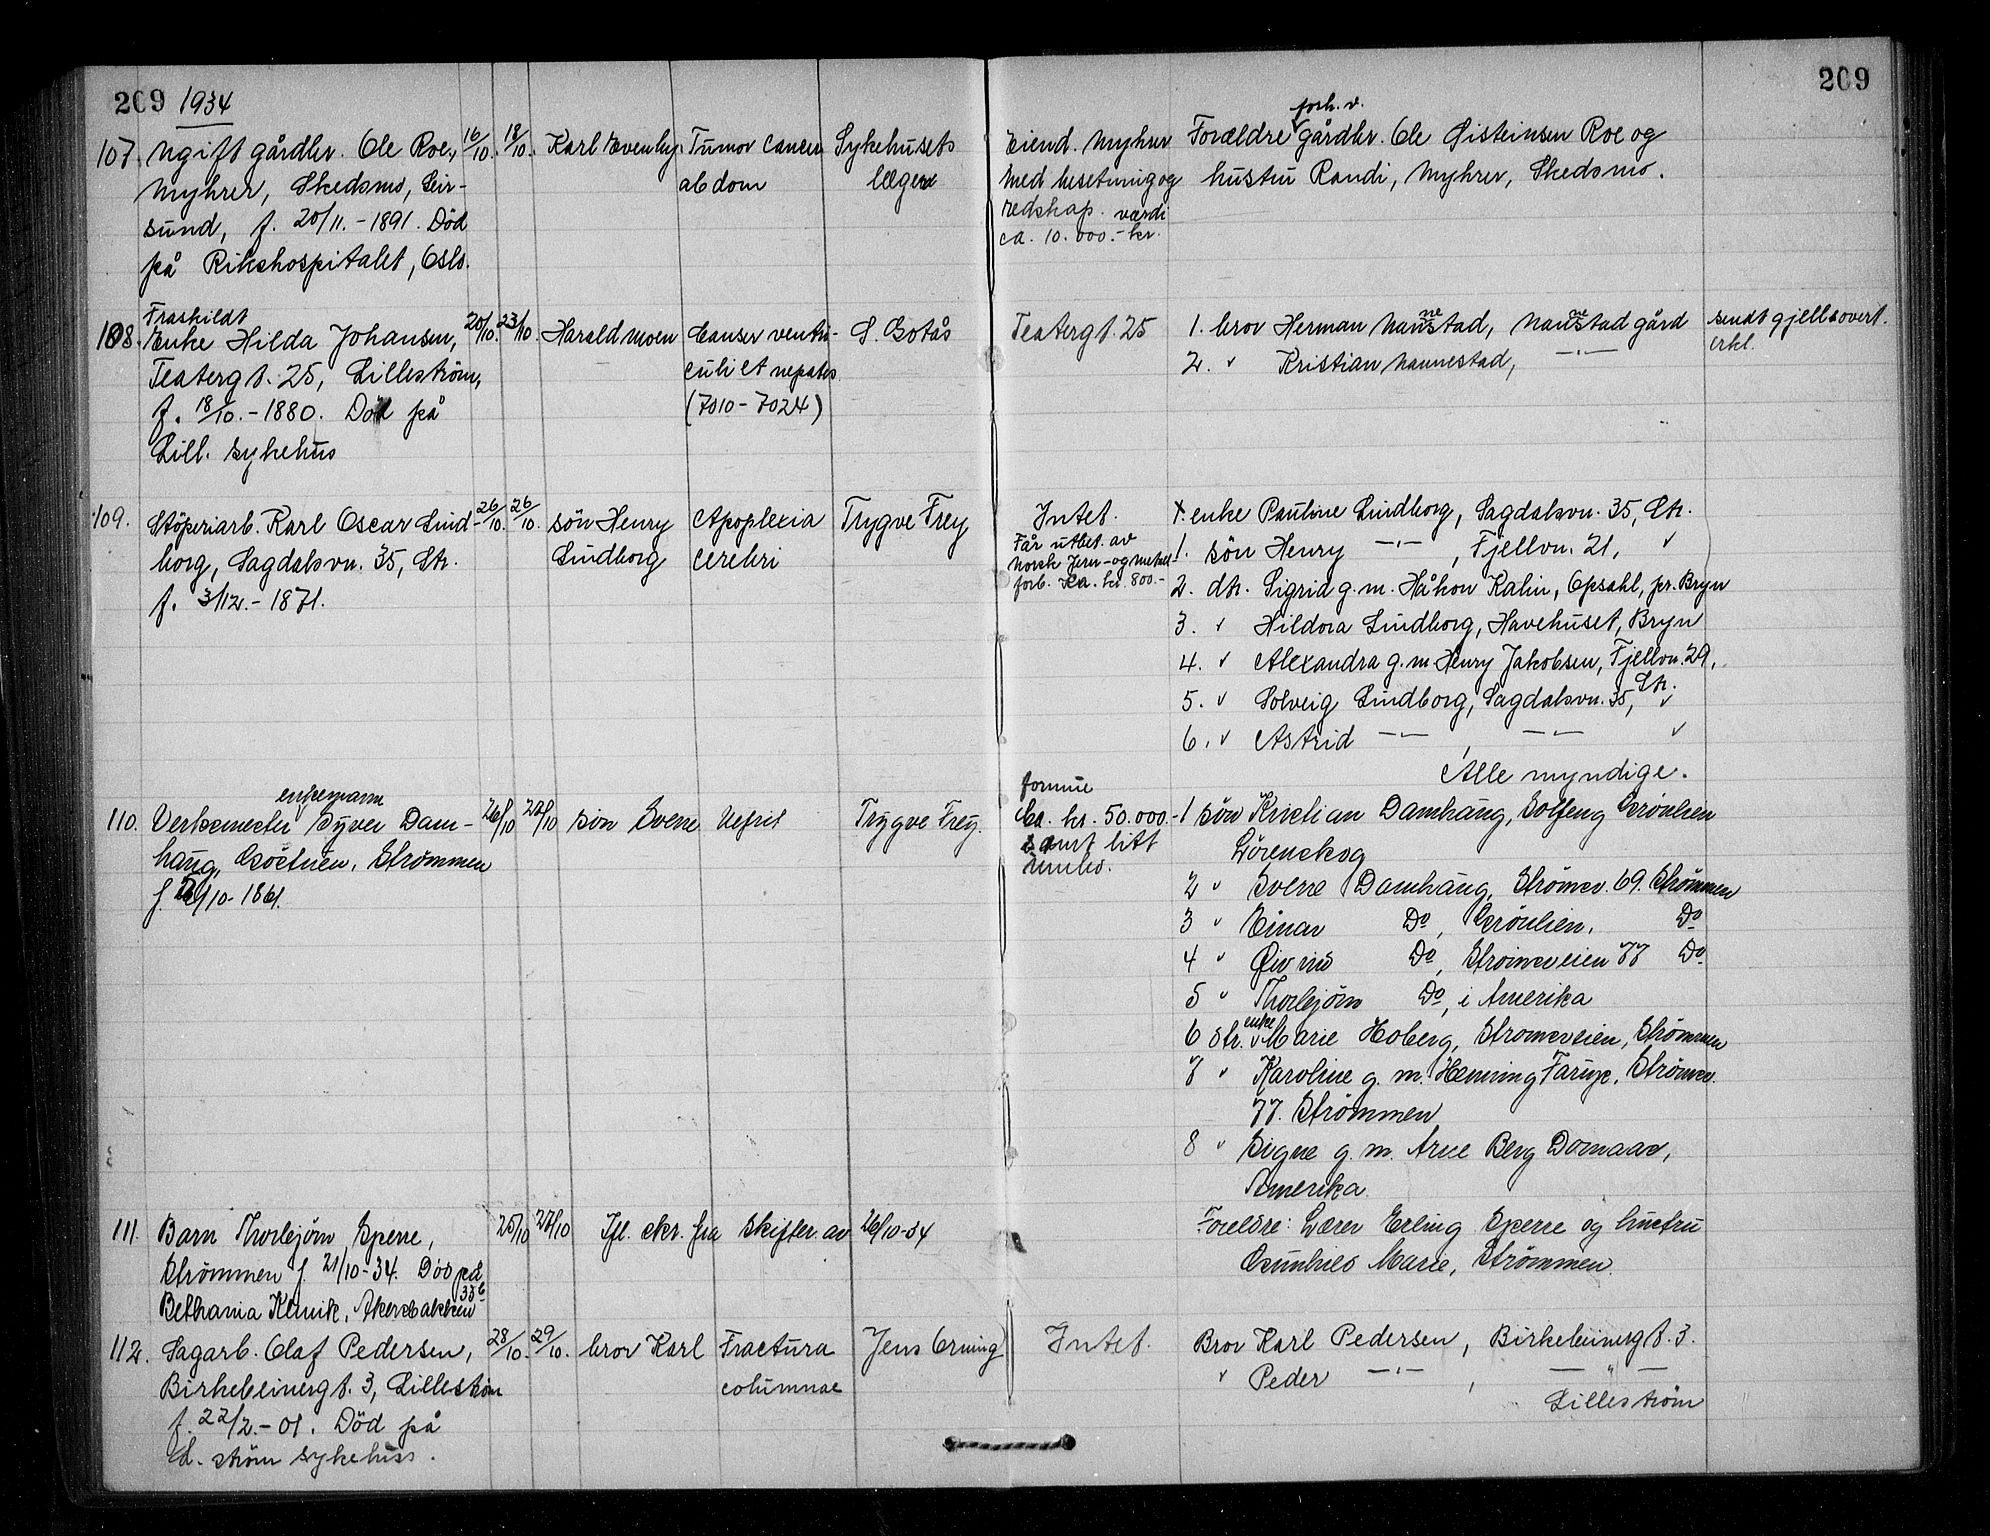 209 1934 209
107. Ugift gårdbr. Ole Roe, 16/10. 18/10. Karl Evenby. Tumor cancer Sykehusets
Myhrer, Skedsmo, Leir- abdom lægen
sund, f. 20/11.-1891. Død
på Rikshospitalet, Oslo.
Eiend. Myhrer
med besetning og
redskap. værdi
ca. 10.000.- kr.
forh. v.
Forældre gårdbr. Ole Gisteinsen Roe og
hustru Randi, Myhrer, Skedsmo.
Fraskildt
108. Enke Hilda Johansen, 20/10. 23/10. Harald Moen Canser ventri- S. Botås
Teatergt. 25, Lilleström, culi et nepatis
f. 18/10.-1880. Død på (7010-7024)
Lill. sykehus
Teatergt. 25
1. bror Herman Nannestad, Nannestad gård
2. " Kristian Nannestad, -"-
sendt gjeldsovert.
erkl.
109. Stöperiarb. Karl Oscar Lind- 26/10. 26/10. sön Henry Apoplexia Trygve Frey
borg, Sagdalsvn. 35, Str. Lindborg cerebri
f. 3/12.-1871.
Intet.
Får utbet. av
Norsk Jern-og metal-
forb. ca. kr. 800.-
enke Pauline Lindborg, Sagdalsvn. 35, Str.
1. sön Henry -"-, Fjellvn. 21, "
2. dtr. Sigrid g.m. Håkon Kalin, Opsahl, pr. Bryn
3. " Hildora Lindborg, Havehuset, Bryn
4. " Alexandra g.m Henry Jakobsen, Fjellvn. 29,
Str.
5. " Solveig Lindborg, Sagdalsvn. 35, "
6. " Astrid -"-, -"- "
Alle myndige.
enkemann
110. Verksmester Syver Dam- 26/10 27/10 sön Sverre Nefrit Trygve Frey.
haug, Strømmen
f. /10-1861.
formue
Ca. kr. 50.000.-
samt litt
innbo.
1 søn Kristian Damhaug, Solfeng Grönlien
Lørenskog
2 " Sverre Damhaug, Strømsv. 69. Strømmen
3 " Einar Do, Grönlien. Do
4 " Øivind Do, Strømsveien 77 Do
5 " Thorbjørn Do, i Amerika
enke
6 dtr. Marie Hoberg, Strømsveien, Strømmen
7 " Karoline g.m. Henning Farup, Strømsv.
77. Strømmen
8 " Signe g.m. Arne Berg Domaas,
Amerika
111. Barn Thorbjørn Sperre, 25/10 27/10 Ifl. skr. fra Skifter. av 26/10-34
Strømmen f. 21/10-34. Død på
Bethania Klinik, Akersbakken 33 b
Foreldre: Lærer Erling Sperre og hustru
Gunhild Marie, Strømmen.
112. Sagarb. Olaf Pedersen, 28/10. 29/10. bror Karl Fractura Jens Grning
Birkebeinergt. 3, Lilleström columnae
f. 22/2.-01. Död på
L. ström sykehus.
Intet.
Bror Karl Pedersen, Birkebeinergt. 3.
" Peder -"-, -"-
Lilleström